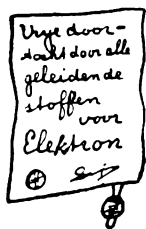 Vrije door-
tocht door alle
geleidende
stoffen
voor
Elektron